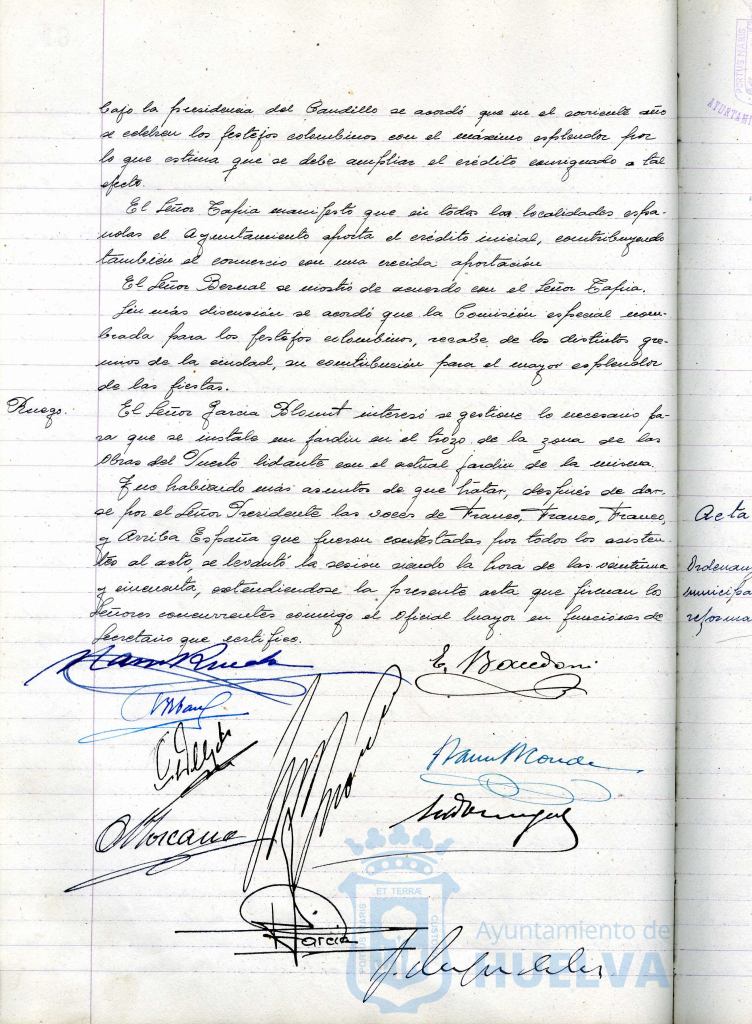 bajo la presidencia del Caudillo se acordó que en el corriente año
se celebren los festejos colombinos con el máximo esplendor por
lo que estima que se debe ampliar el crédito consignado a tal
efecto.
El Señor Tapia manifestó que en todas las localidades espa-
ñolas el Ayuntamiento aporta el crédito inicial, contribuyendo
también el comercio con una crecida aportación
El Señor Bernal se mostró de acuerdo con el Señor Tapia.
Sin más discusión se acordó que la Comisión especial nom-
brada para los festejos colombinos, recabe de los distintos gre-
mios de la ciudad, su contribución para el mayor esplendor
de las fiestas.
Ruego.
El Señor Garcia Blount interesó se gestione lo necesario pa-
ra que se instale un jardin en el trozo de la zona de las
Obras del Puerto lidante con el actual jardin de la misma.
Y no habiendo más asuntos de que tratar, después de dar-
se por el Señor Presidente las voces de Franco, Franco, Franco,
y Arriba España que fueron contestadas por todos los asisten-
tes al acto, se levantó la sesión siendo la hora de las veintiuna
y cincuenta, extendiendose la presente acta que firman los
Señores concurrentes conmigo el Oficial Mayor en funciones de
Secretario que certifico.
Acta
Ordenan
municipa
reforma
García
ET TERRÆ
PORTUS MARIS
CUST
Ayuntamiento de
HUELVA
PORTUS MARIS
AYUNTAMI